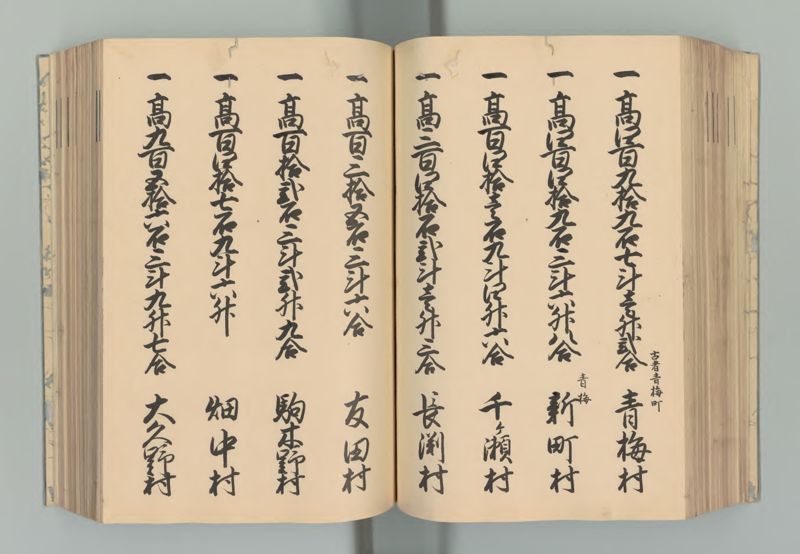 一高四百九拾九石七斗壱升弐合 古者青梅町 青梅村
一高四百四拾九石三斗六升八合 青梅 新町村
一高百四拾壱石九斗四升六合 千ヶ瀬村
一高三百四拾石弐斗壱升三合 長渕村
一高百三拾五石三斗六合 友田村
一高百拾弐石三斗弐升九合 駒木野村
一高百四拾七石九斗六升 畑中村
一高九百五拾六石三斗九升七合 大久野村